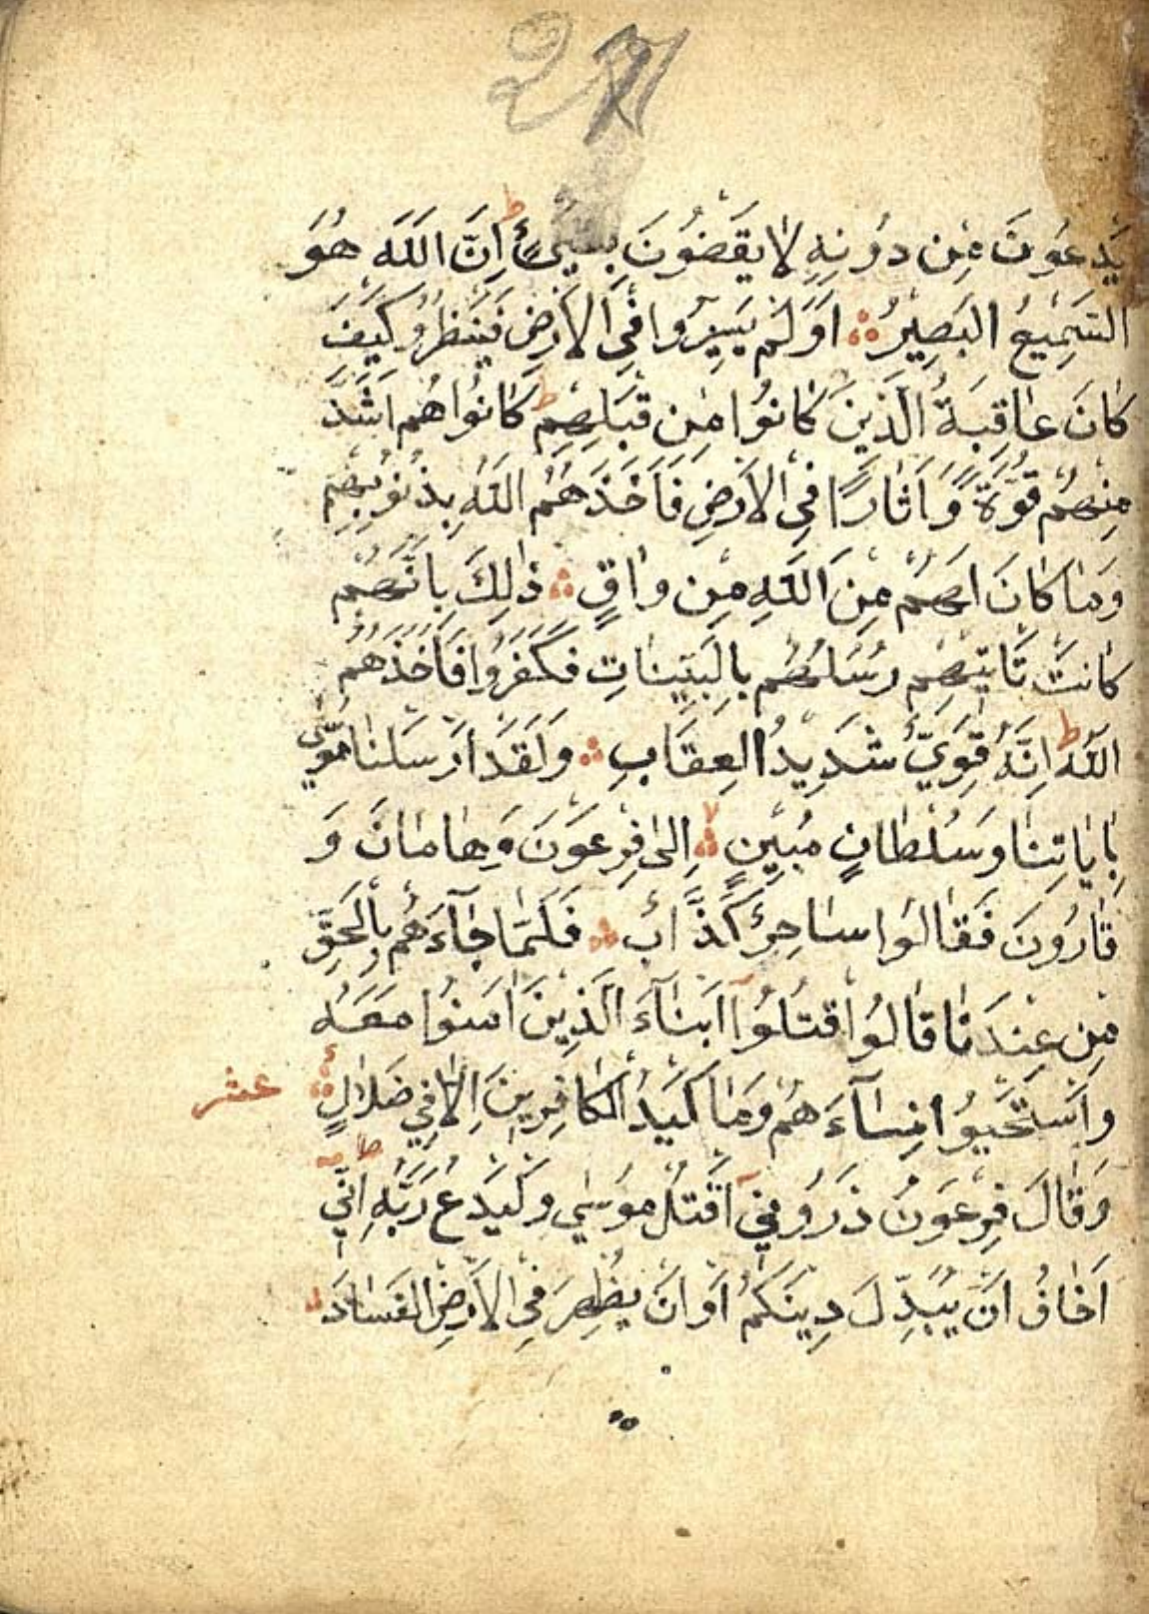 27
يَدْعُونَ مِنْ دُونِهِ لَا يَقْضُونَ بِشَيْءٍ ط اِنَّ اللّٰهَ هُوَ
السَّمِيعُ الْبَصِيرُ ۞ اَوَلَمْ يَسِيرُوا فِي الْاَرْضِ فَيَنْظُرُو كَيْفَ
كَانَ عَاقِبَةُ الَّذِينَ كَانُوا مِنْ قَبْلِهِمْ ط كَانُوا هُمْ اَشَدَّ
مِنْهُمْ قُوَّةً وَاٰثَارًا فِي الْاَرْضِ فَاَخَذَهُمُ اللّٰهُ بِذُنُوبِهِمْ
وَمَا كَانَ لَهُمْ مِنَ اللّٰهِ مِنْ وَاقٍ ۞ ذٰلِكَ بِاَنَّهُمْ
كَانَتْ تَاْتِيهِمْ رُسُلُهُمْ بِالْبَيِّنَاتِ فَكَفَرُوا فَاَخَذَهُمُ
اللّٰهُ ط اِنَّهُ قَوِيٌّ شَدِيدُ الْعِقَابِ ۞ وَلَقَدْ اَرْسَلْنَا مُوسٰي
بِاٰيَاتِنَا وَسُلْطَانٍ مُبِينٍ ۞ لا اِلٰى فِرْعَوْنَ وَهَامَانَ وَ
قَارُونَ فَقَالُوا سَاحِرٌ كَذَّابٌ ۞ فَلَمَّا جَآءَهُمْ بِالْحَقِّ
مِنْ عِنْدِنَا قَالُوا اقْتُلُوٓا اَبْنَآءَ الَّذِينَ اٰمَنُوا مَعَهُ
وَاسْتَحْيُوا نِسَآءَهُمْ وَمَا كَيْدُ الْكَافِرِينَ اِلَّا فِي ضَلَالٍ ۞ عشر
وَقَالَ فِرْعَوْنُ ذَرُونِيٓ اَقْتُلْ مُوسٰي وَلْيَدْعُ رَبَّهُ اِنِّيٓ
اَخَافُ اَنْ يُبَدِّلَ دِينَكُمْ اَوْ اَنْ يُظْهِرَ فِي الْاَرْضِ الْفَسَادَ